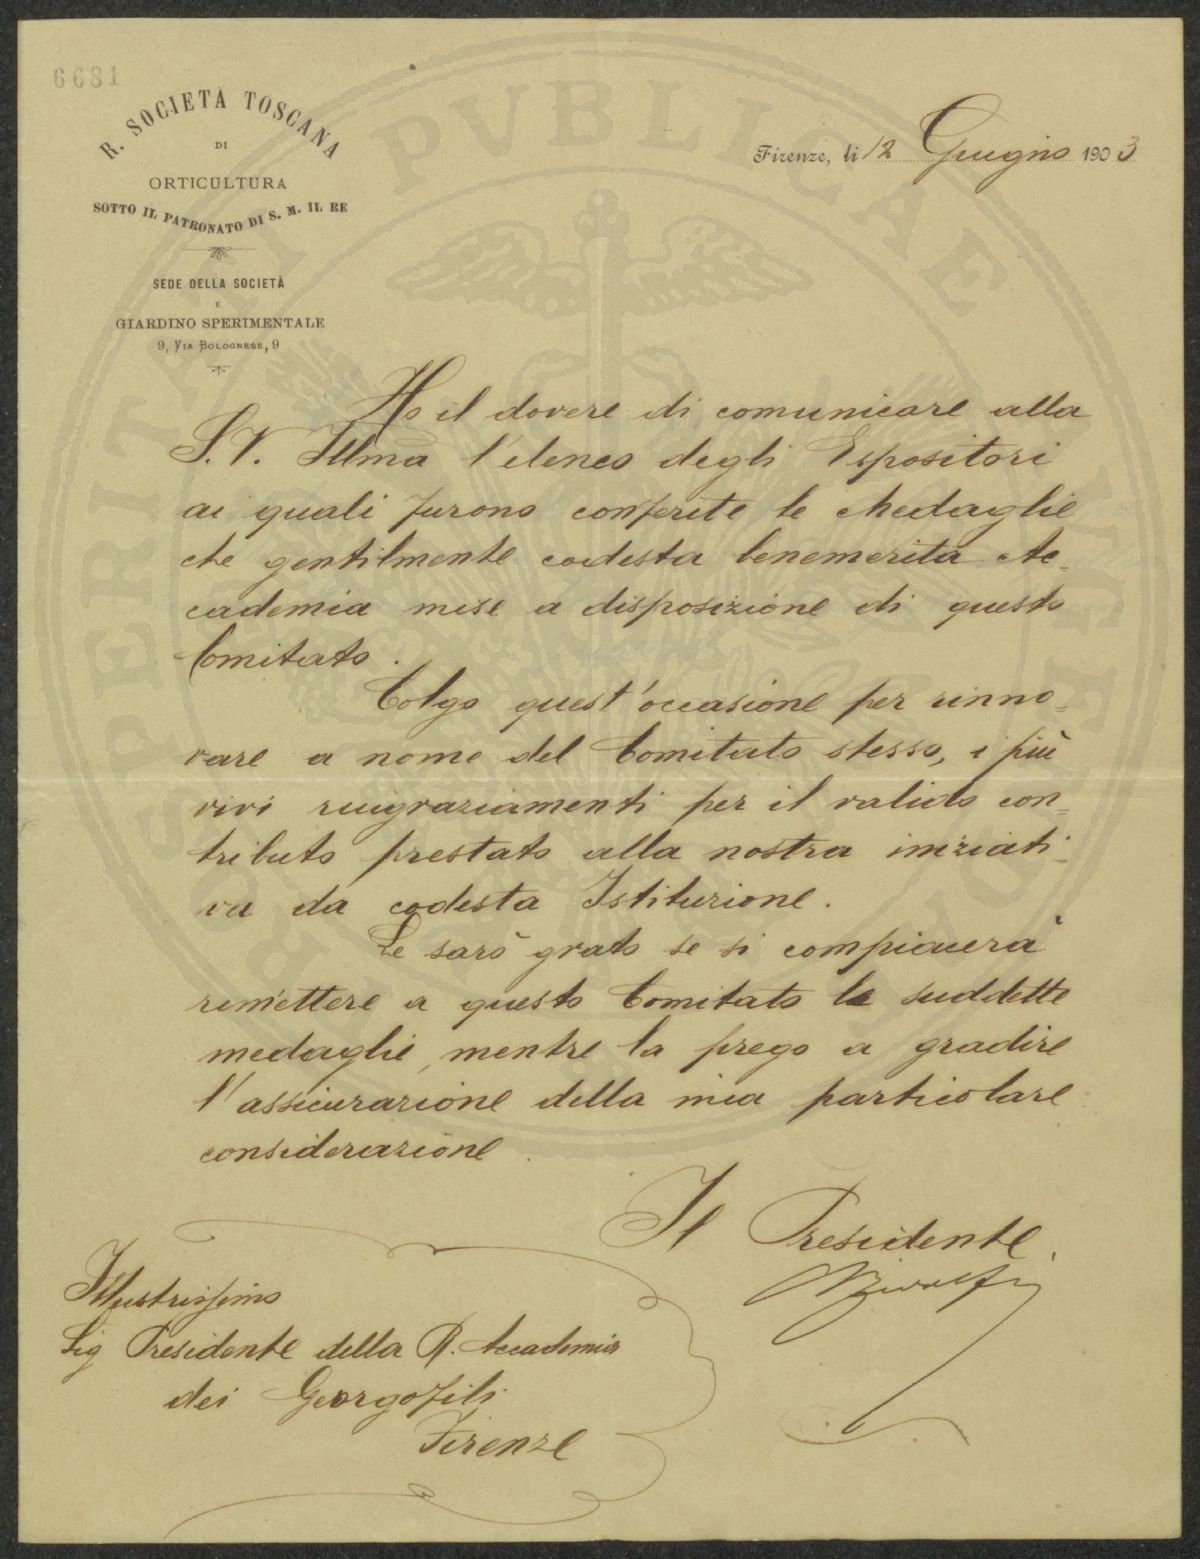 6631
R. SOCIETÀ TOSCANA
DI
ORTICULTURA
SOTTO IL PATRONATO DI S. M. IL RE
SEDE DELLA SOCIETÀ
E
GIARDINO SPERIMENTALE
9, VIA BOLOGNESE, 9
Firenze, li 12 Giugno 1903
Ho il dovere di comunicare alla
S.V. Illma l'elenco degli Espositori
ai quali furono conferite le Medaglie
che gentilmente codesta benemerita Ac=
cademia mise a disposizione di questo
Comitato.
Colgo quest'occasione per rinno=
vare a nome del Comitato stesso, i più
vivi ringraziamenti per il valido con=
tributo prestato alla nostra iniziati=
va da codesta Istituzione.
Le sarò grato se si compiacerà
rimettere a questo Comitato le suddette
medaglie, mentre la prego a gradire
l'assicurazione della mia particolare
considerazione.
Il Presidente
Ridolfi
Illustrissimo
Sig Presidente della R. Accademia
dei Georgofili
Firenze
PROSPERITATI PVBLICAE AVGENDAE